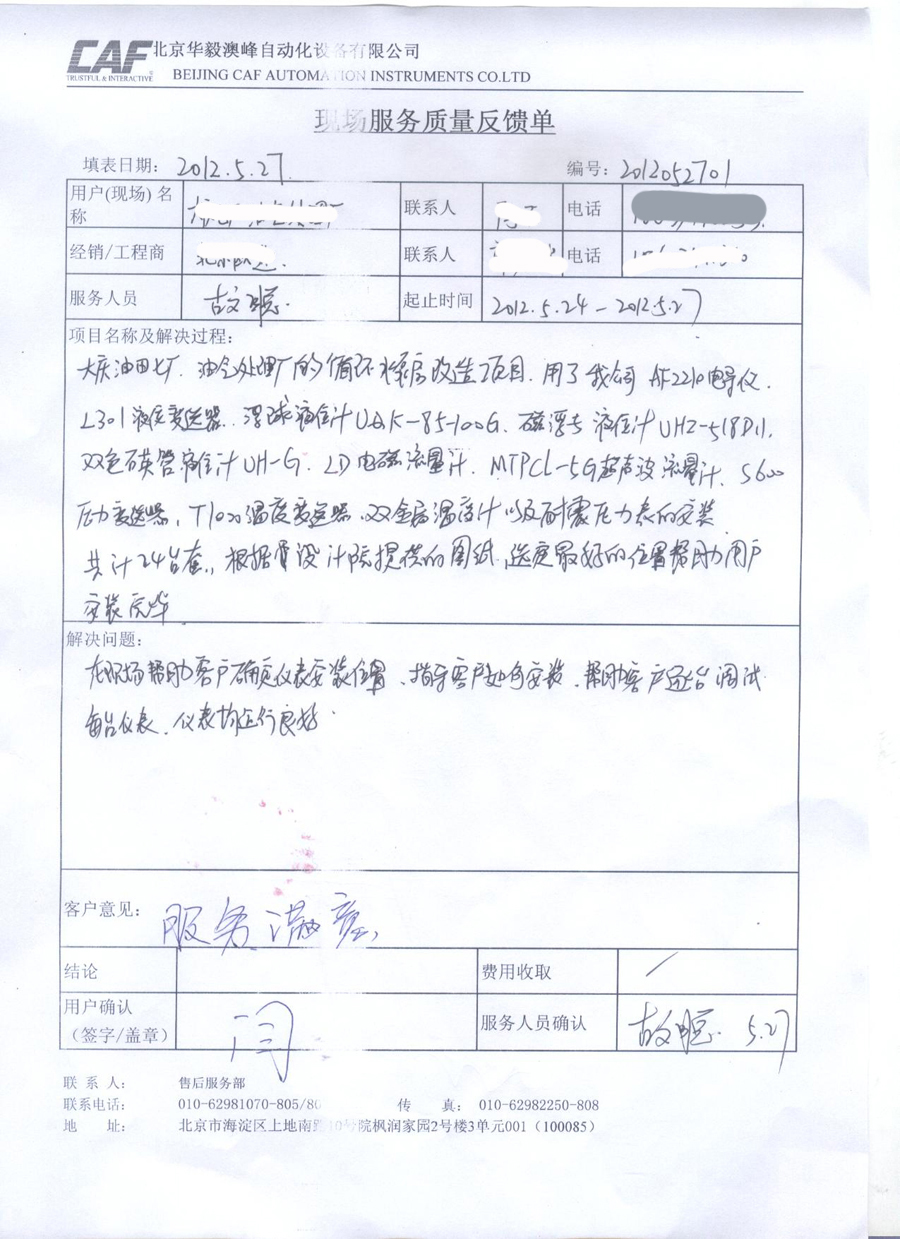 CAF 北京华毅澳峰自动化设备有限公司
TRUSTFUL & INTERACTIVE BEIJING CAF AUTOMATION INSTRUMENTS CO.LTD
现场服务质量反馈单
填表日期: 2012.5.27. 编号: 2012052701
用户(现场)名称 联系人 电话
经销/工程商 联系人 电话
服务人员 起止时间 2012.5.24-2012.5.27
项目名称及解决过程:
大庆油田七厂、油气处理厂的循环水泵房改造项目.用了我公司AF2210电导仪、
L301液位变送器、浮球液位计UQK-85-100G、磁浮子液位计UHZ-518P11、
双色石英管液位计UH-G、LD电磁流量计、MTPCL-5G超声波流量计、S600
压力变送器、T1020温度变送器、双金属温度计以及耐震压力表的安装
共计24台套,根据设计院提供的图纸,选定最好的位置帮助用户
安装完毕
解决问题:
在现场帮助客户确定仪表安装位置、指导客户如何安装、帮助客户逐台调试
每台仪表、仪表均运行良好.
客户意见: 服务满意
结论 费用收取 /
用户确认
(签字/盖章) 闫 服务人员确认 5.27
联 系 人: 售后服务部
联系电话: 010-62981070-805/80 传 真: 010-62982250-808
地 址: 北京市海淀区上地南路10号院枫润家园2号楼3单元001(100085)